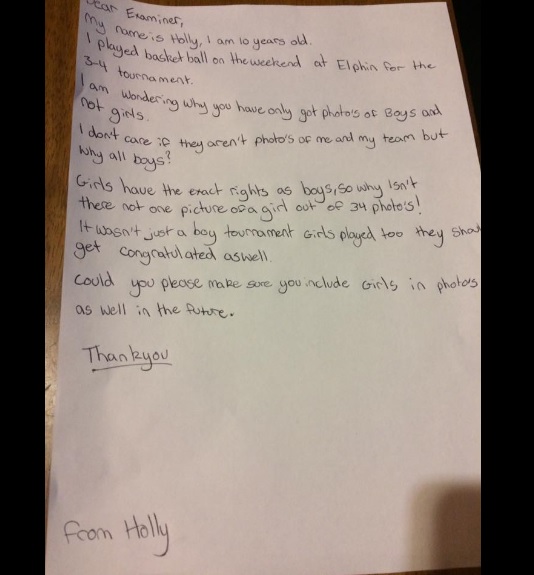 Dear Examiner,
My name is Holly, I am 10 years old.
I played basket ball on the weekend at Elphin for the
3-4 tournament.
I am wondering why you have only got photo's of Boys and
not girls.
I don't care if they aren't photo's of me and my team but
why all boys?
Girls have the exact rights as boys, so why Isn't
there not one picture of a girl out of 34 photo's!
It wasn't just a boy tournament Girls played too they shou
get congratulated aswell.
Could you please make sure you include Girls in photo's
as well in the future.
Thankyou
From Holly